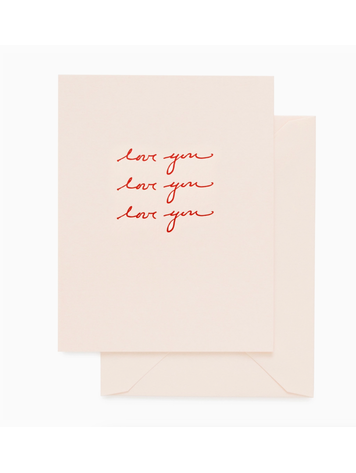 love you
love you
love you